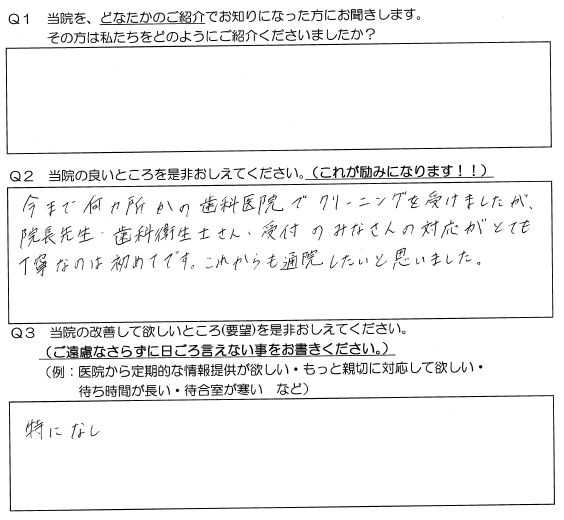 Q1 当院を、どなたかのご紹介でお知りになった方にお聞きします。
その方は私たちをどのようにご紹介くださいましたか？
Q2 当院の良いところを是非おしえてください。（これが励みになります！！）
今まで何カ所かの歯科医院でクリーニングを受けましたが、
院長先生・歯科衛生士さん・受付のみなさんの対応がとても
丁寧なのは初めてです。これからも通院したいと思いました。
Q3 当院の改善して欲しいところ(要望)を是非おしえてください。
（ご遠慮なさらずに日ごろ言えない事をお書きください。）
（例：医院から定期的な情報提供が欲しい・もっと親切に対応して欲しい・
待ち時間が長い・待合室が寒い など）
特になし